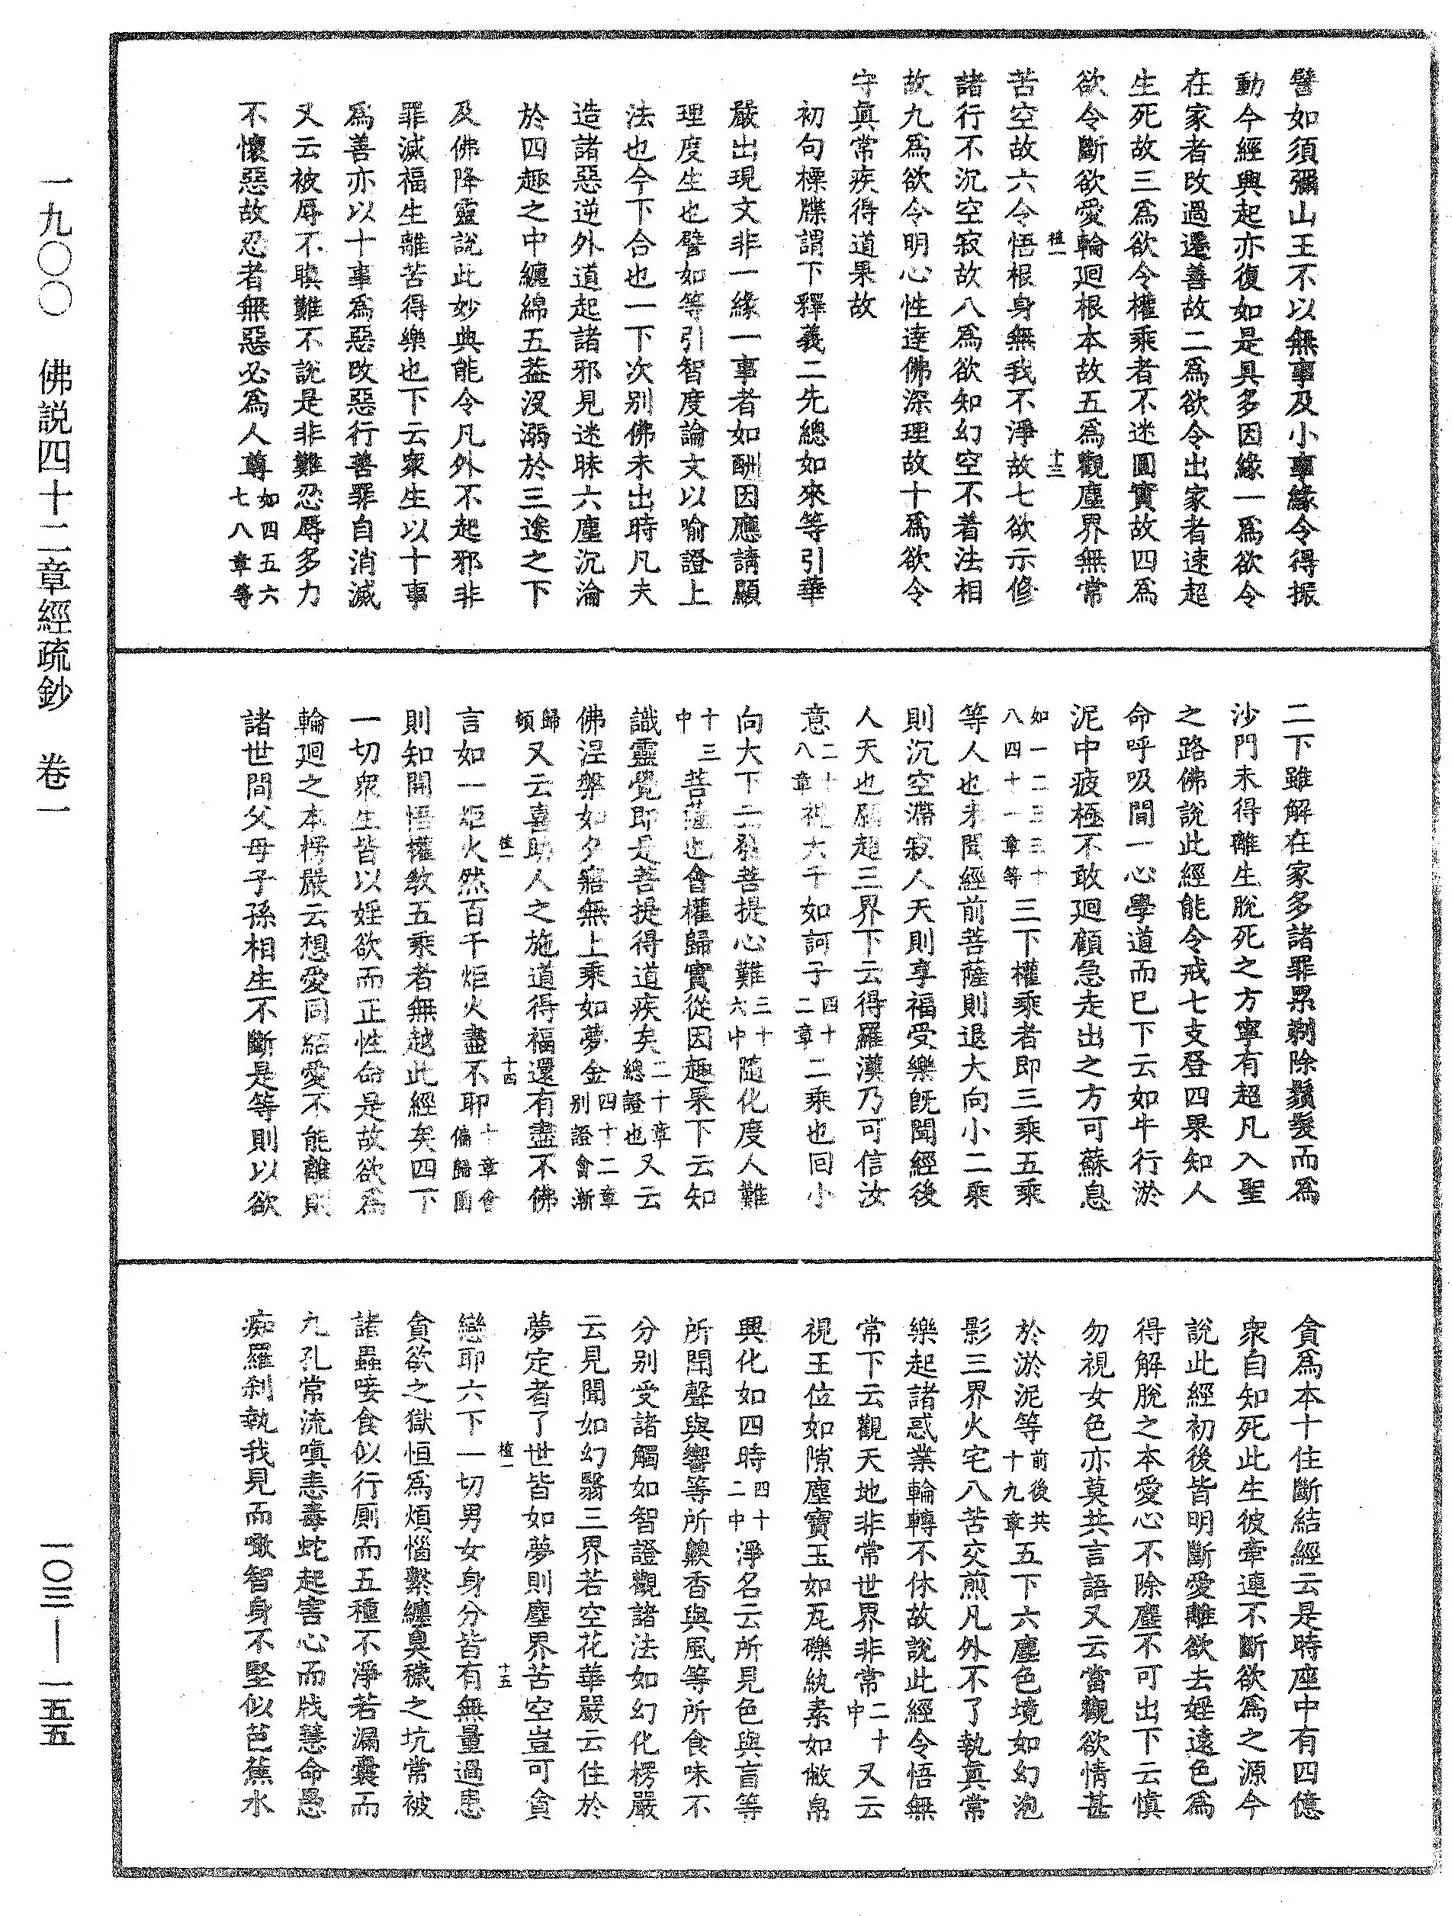 譬如須彌山王不以無事及小事緣令得振
動今經興起亦復如是具多因緣一爲欲令
在家者改過遷善故二爲欲令出家者速超
生死故三爲欲令權乘者不迷圓實故四爲
欲令斷欲愛輪廻根本故五爲觀塵界無常
植一
十三
苦空故六令悟根身無我不淨故七欲示修
諸行不沉空寂故八爲欲知幻空不着法相
故九爲欲令明心性達佛深理故十爲欲令
守眞常疾得道果故
初句標牒謂下釋義二先總如來等引華
嚴出現文非一緣一事者如酬因應請顯
理度生也譬如等引智度論文以喻證上
法也今下合也一下次別佛未出時凡夫
造諸惡逆外道起諸邪見迷昧六塵沉淪
於四趣之中纏綿五葢沒溺於三途之下
及佛降靈說此妙典能令凡外不起邪非
罪滅福生離苦得樂也下云衆生以十事
爲善亦以十事爲惡改惡行善罪自消滅
又云被辱不瞋難不說是非難忍辱多力
不懷惡故忍者無惡必爲人尊如四五六七八章等
二下雖解在家多諸罪累剃除鬚髮而爲
沙門未得離生脫死之方寧有超凡入聖
之路佛說此經能令戒七支登四果知人
命呼吸間一心學道而已下云如牛行淤
泥中疲極不敢廻顧急走出之方可蘇息
如一二三三十八四十一章等三下權乘者即三乘五乘
等人也未聞經前菩薩則退大向小二乘
則沉空滯寂人天則享福受樂旣聞經後
人天也願超三界下云得羅漢乃可信汝
意二十八章視大千如訶子四十二章二乘也回小
向大下云發菩提心難三十六中隨化度人難
十三中菩薩也會權歸實從因趣果下云知
識靈覺即是菩提得道疾矣二十章總證也又云
佛涅槃如夕寤無上乘如夢金四十二章別證會漸
歸頓又云喜助人之施道得福還有盡不佛
植一
十四
言如一炬火然百千炬火盡不耶十章會偏歸圓
則知開悟權教五乘者無越此經矣四下
一切衆生皆以婬欲而正性命是故欲爲
輪廻之本楞嚴云想愛同結愛不能離則
諸世間父母子孫相生不斷是等則以欲
貪爲本十住斷結經云是時座中有四億
衆自知死此生彼牽連不斷欲爲之源今
說此經初後皆明斷愛離欲去婬遠色爲
得解脫之本愛心不除塵不可出下云慎
勿視女色亦莫共言語又云當觀欲情甚
於淤泥等前後共十九章五下六塵色境如幻泡
影三界火宅八苦交煎凡外不了執眞常
樂起諸惑業輪轉不休故說此經令悟無
常下云觀天地非常世界非常二十中又云
視王位如隙塵寶玉如瓦礫紈素如敝帛
興化如四時四十二中淨名云所見色與盲等
所聞聲與響等所齅香與風等所食味不
分別受諸觸如智證觀諸法如幻化楞嚴
云見聞如幻翳三界若空花華嚴云住於
夢定者了世皆如夢則塵界苦空豈可貪
植一
十五
戀耶六下一切男女身分皆有無量過患
貪欲之獄恒爲煩惱繫纏臭穢之坑常被
諸蟲唼食似行厠而五種不淨若漏囊而
九孔常流嗔恚毒蛇起害心而戕慧命愚
痴羅刹執我見而噉智身不堅似芭蕉水
一九〇〇　佛説四十二章經疏鈔　卷一
一〇三—一五五